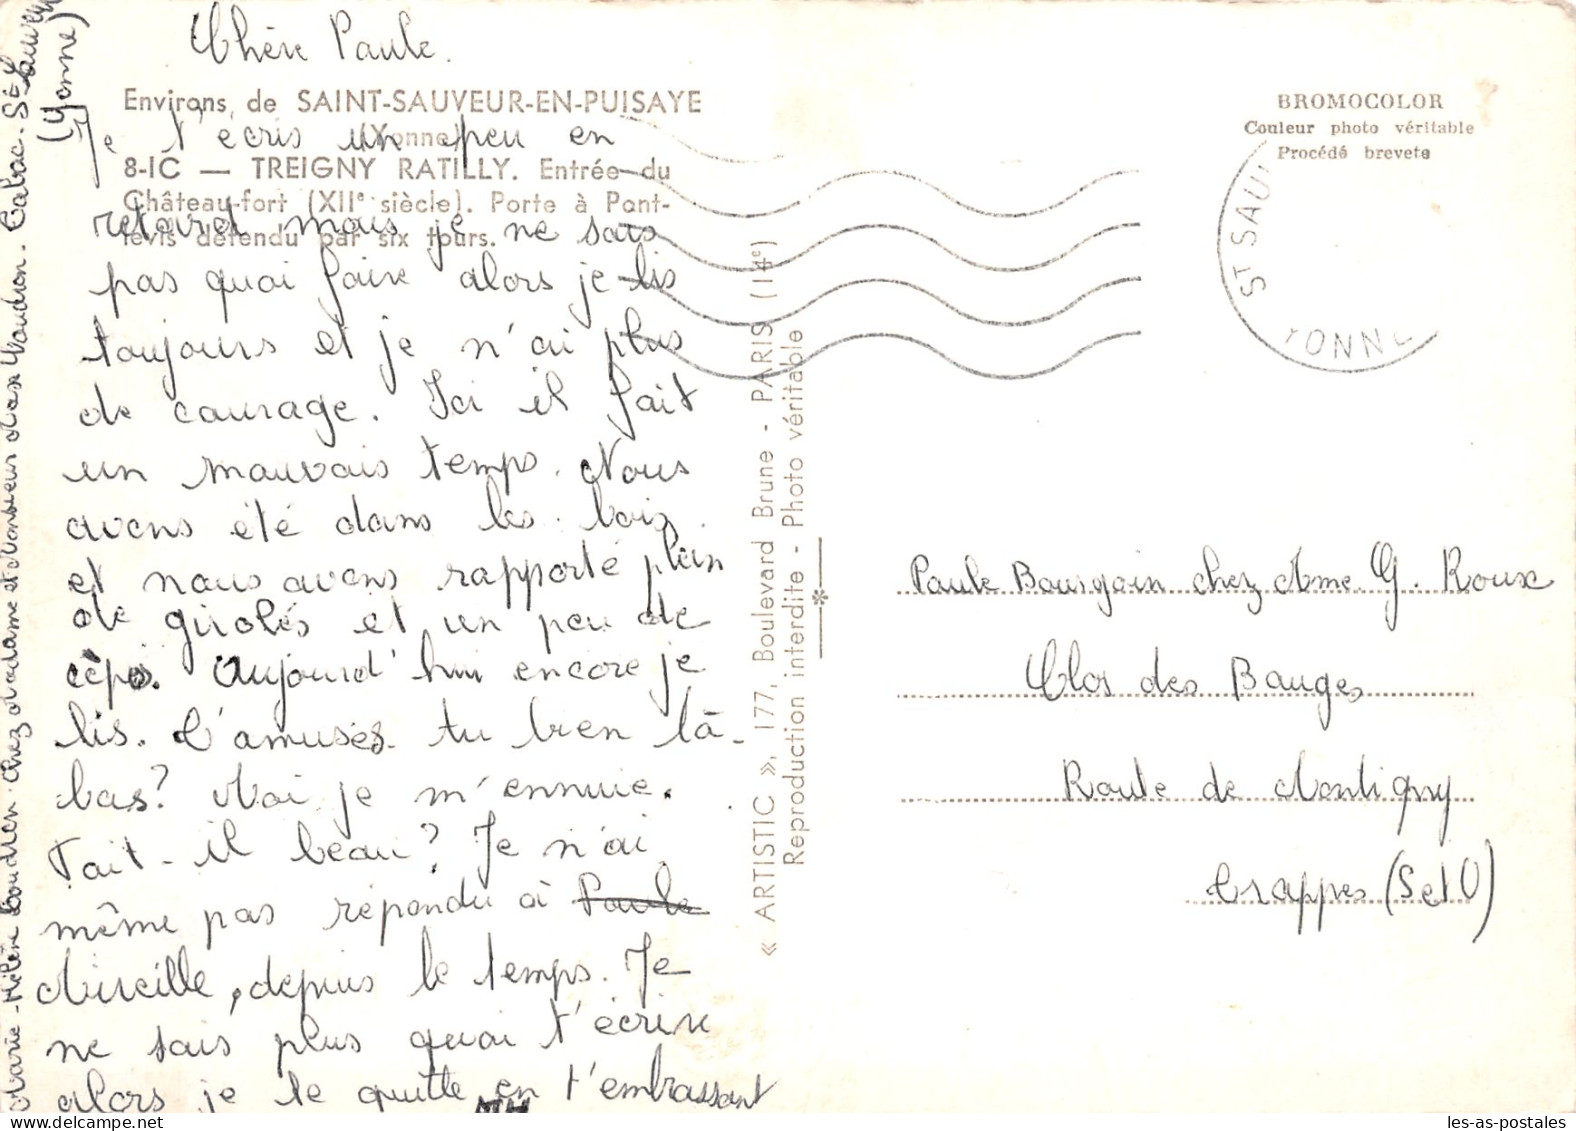 Chère Paule.
Environs de SAINT-SAUVEUR-EN-PUISAYE
(Yonne)
Je t'écris un peu en
8-IC — TREIGNY RATILLY. Entrée du
Château-fort (XIIe siècle). Porte à Pont-
retard mais je ne sais
levis défendu par six tours.
pas quoi faire alors je lis
toujours et je n'ai plus
de courage. Ici il fait
un mauvais temps. Nous
avons été dans les bois
et nous avons rapporté plein
de girolés et un peu de
cèpes. Aujourd'hui encore je
lis. T'amuses-tu bien là-
bas? Moi je m'ennuie.
Fait-il beau? Je n'ai
même pas répondu à Paule
Mireille, depuis le temps. Je
ne sais plus quoi t'écrire
alors je te quitte en t'embrassant
MH
Marie-Hélène chez Madame et Monsieur Tabac. St Sauveur
(Yonne)
« ARTISTIC », 177, Boulevard Brune - PARIS (14e)
Reproduction interdite - Photo véritable
BROMOCOLOR
Couleur photo véritable
Procédé breveté
ST SAU
YONNE
Paule Bourgoin chez Mme G. Roux
Clos des Bauges
Route de Montigny
Trappes (S et O)
les-as-postales